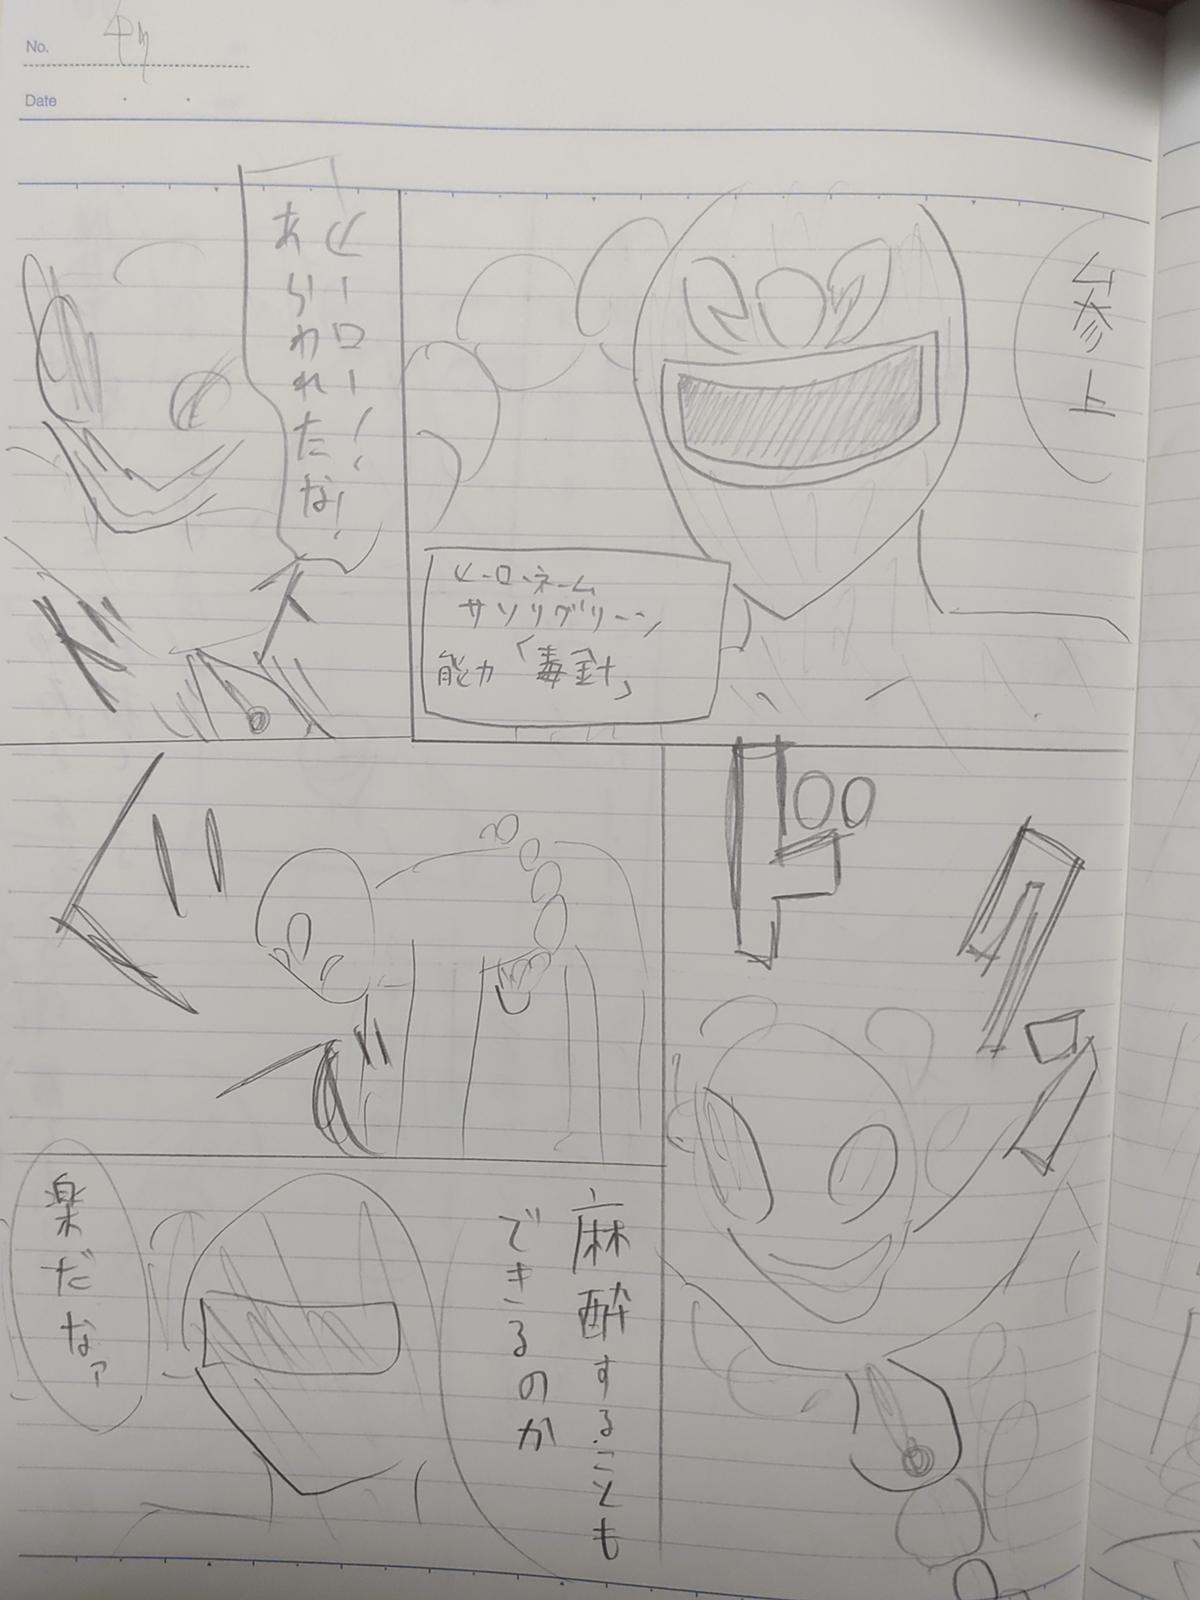 No.
Date
参上
ヒーローネーム
サソリグリーン
能力「毒針」
ヒーロー!
あらわれたな!
麻酔することも
できるのか
楽だなァ